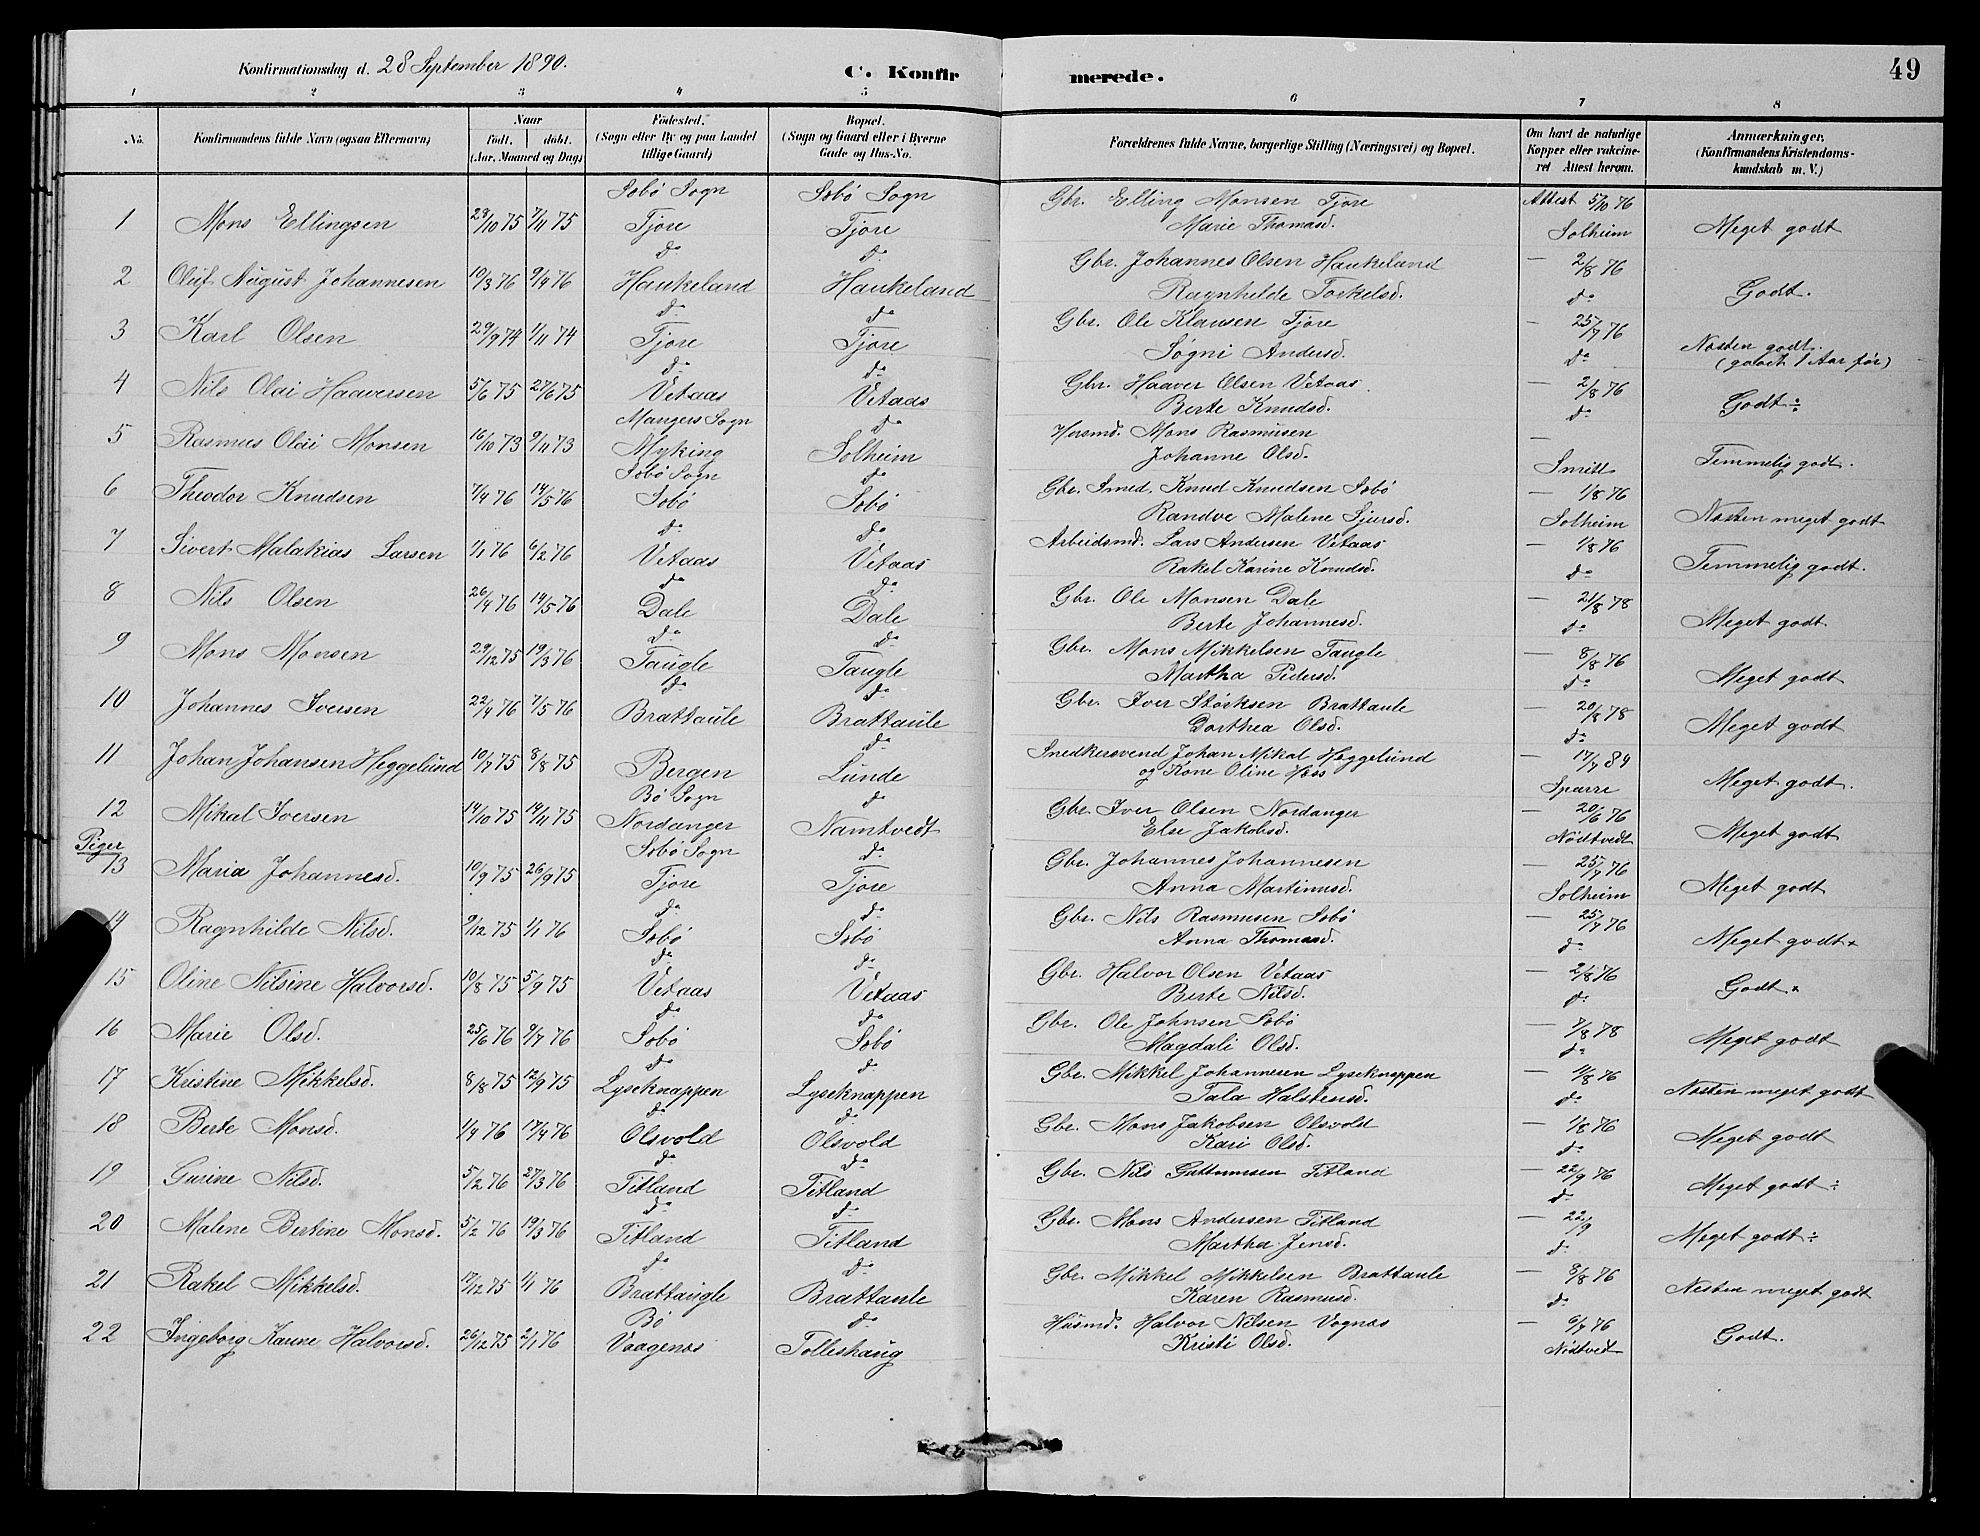 Konfirmationsdag d. 28 September 1890.
C. Konfirmerede.
49
1 2 3 4 5 6 7 8
No.
Konfirmandens fulde Navn (ogsaa Efternavn)
Naar
født. døbt.
(Aar, Maaned og Dag)
Fødested.
(Sogn eller By og paa Landet
tillige Gaard)
Bopæl.
(Sogn og Gaard eller i Byerne
Gade og Hus-No.
Forældrenes fulde Navne, borgerlige Stilling (Næringsvei) og Bopæl.
Om havt de naturlige
Kopper eller vakcine-
ret Attest herom.
Anmærkninger.
(Konfirmandens Kristendoms-
kundskab m. V.)
Sæbø Sogn Sæbø Sogn Gbr. Elling Monsen Tjore Attest 5/10 76
1 Mons Ellingsen 28/10 75 7/11 75 Tjore Tjore Marie Thomasd. Solheim Meget godt
do do Gbr. Johannes Olsen Haukeland — 2/8 76
2 Oluf August Johannesen 10/3 76 9/4 76 Haukeland Haukeland Ragnhilde Torkelsd. do Godt.
do do Gbr. Ole Klausen Tjore — 25/7 76
3 Karl Olsen 29/9 74 1/11 74 Tjore Tjore Søgni Andersd. do Næsten godt.
(gaaet 1 Aar før)
do do Gbr. Haaver Olsen Vetaas — 2/8 76
4 Nils Olai Haaversen 5/6 75 27/6 75 Vetaas Vetaas Berte Knudsd. do Godt ÷
Mangers Sogn do Husmd. Mons Rasmusen —
5 Rasmus Olai Monsen 16/10 73 9/11 73 Myking Solheim Johanne Olsd. Smitt Temmelig godt.
Sæbø Sogn do Gbr. Smed. Knud Knudsen Sæbø — 1/8 76
6 Theodor Knudsen 7/4 76 14/5 76 Sæbø Sæbø Randve Malene Sjursd. Solheim Næsten meget godt
do do Arbeidsmd. Lars Andersen Vetaas — 1/8 76
7 Sivert Malakias Larsen 1/1 76 6/2 76 Vetaas Vetaas Rakel Karine Knudsd. do Temmelig godt.
do do Gbr. Ole Monsen Dale — 21/8 78
8 Nils Olsen 26/4 76 14/5 76 Dale Dale Berte Johannesd. do Meget godt
do do Gbr. Mons Mikkelsen Taugle — 8/8 76
9 Mons Monsen 29/12 75 19/3 76 Taugle Taugle Martha Pedersd. do Meget godt
do do Gbr. Iver Størksen Brattaule — 20/8 78
10 Johannes Iversen 22/4 76 7/5 76 Brattaule Brattaule Dorthea Olsd. do Meget godt
do Snedkersvend Johan Mikal Heggelund — 17/7 84
11 Johan Johansen Heggelund 10/7 75 8/8 75 Bergen Lunde og Kone Oline Moss Sparre Meget godt.
Bø Sogn do Gbr. Iver Olsen Nordanger — 20/6 76
12 Mikal Iversen 14/10 75 14/11 75 Nordanger Namtvedt Else Jakobsd. Nødtvedt Meget godt
Piger
Sæbø Sogn do Gbr. Johannes Johannesen — 25/7 76
13 Maria Johannesd. 10/9 75 26/9 75 Tjore Tjore Anna Martinusd. Solheim Meget godt
do do Gbr. Nils Rasmusen Sæbø — 25/7 76
14 Ragnhilde Nilsd. 9/12 75 1/1 76 Sæbø Sæbø Anna Thomasd. do Meget godt +
do do Gbr. Halvor Olsen Vetaas — 2/8 76
15 Oline Nilsine Halvorsd. 10/8 75 5/9 75 Vetaas Vetaas Berte Nilsd. do Godt. +
do do Gbr. Ole Johnsen Sæbø — 7/8 78
16 Marie Olsd. 25/6 76 9/7 76 Sæbø Sæbø Magdali Olsd. do Meget godt
do do Gbr. Mikkel Johannesen Lyseknappen — 11/8 76
17 Kristine Mikkelsd. 8/8 75 12/9 75 Lyseknappen Lyseknappen Tala Halstensd. do Næsten meget godt
do do Gbr. Mons Jakobsen Olsvold — 1/8 76
18 Berte Monsd. 1/4 76 17/4 76 Olsvold Olsvold Kari Olsd. do Meget godt
do do Gbr. Nils Guttormsen Titland — 22/9 76
19 Gurine Nilsd. 5/2 76 27/3 76 Titland Titland do Meget godt ÷
do do Gbr. Mons Andersen Titland — 22/9
20 Malene Bertine Monsd. 5/2 76 19/3 76 Titland Titland Martha Jensd. do Meget godt ÷
do do Gbr. Mikkel Mikkelsen Brattaule — 8/8 76
21 Rakel Mikkelsd. 17/12 75 1/1 76 Brattaugle Brattaule Karen Rasmusd. do Nesten meget godt
Bø do Husmd. Halvor Nilsen Vognæs — 6/7 76
22 Ingeborg Karine Halvorsd. 26/12 75 2/1 76 Vaagenæs Tolleshaug Kristi Olsd. Nødtvedt Godt.